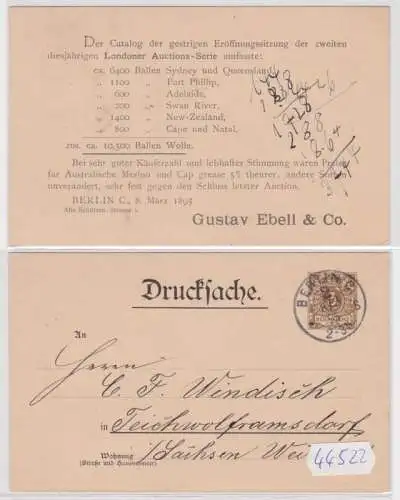 Der Catalog der gestrigen Eröffnungssitzung der zweiten
diesjährigen Londoner Auctions-Serie umfasste:
ca. 6400 Ballen Sydney und Queensland,
„ 1100 „ Port Phillip,
„ 600 „ Adelaide,
„ 200 „ Swan River,
„ 1400 „ New-Zealand,
„ 800 „ Cape und Natal,
zus. ca. 10,500 Ballen Wolle.
Bei sehr guter Käuferzahl und lebhafter Stimmung waren Preise
für Australische Merino und Cap grease 5% theurer, andere Sorten
unverändert, sehr fest gegen den Schluss letzter Auction.
BERLIN C., 8. März 1895
Alte Schützen-Strasse
Gustav Ebell & Co.
Drucksache.
BERLIN C
An
Herrn
C. F. Windisch
in Teichwolframsdorf
Wohnung
(Straße und Hausnummer)
Sachsen
44522